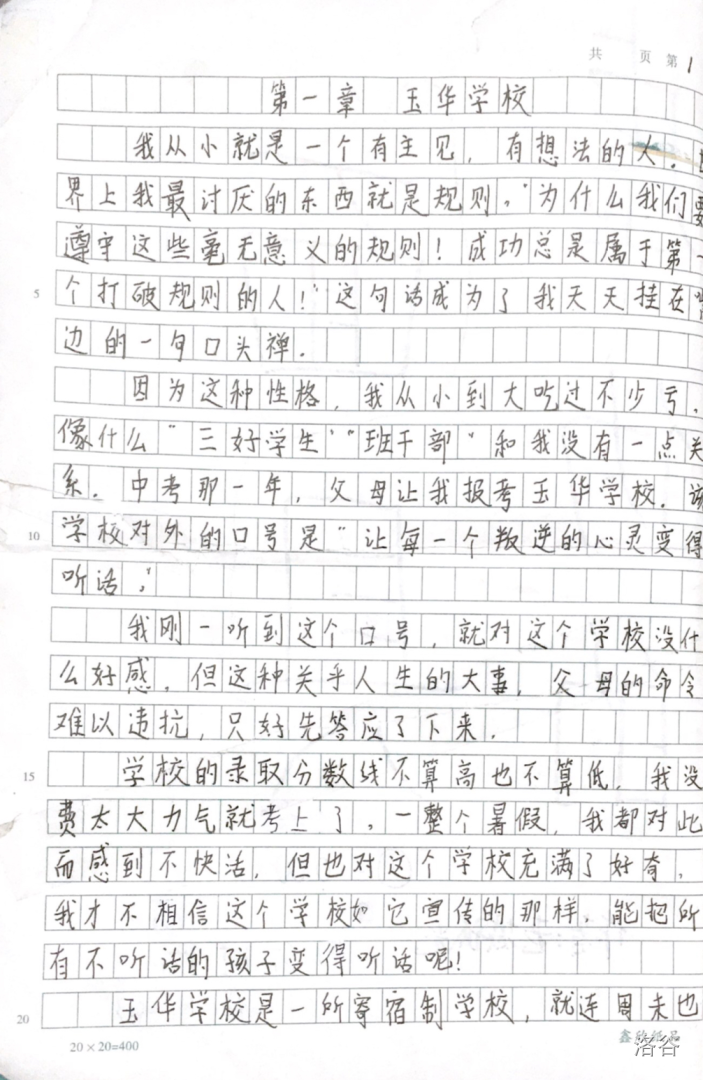 共 页 第 1
第一章 玉华学校
我从小就是一个有主见，有想法的人．
界上我最讨厌的东西就是规则。“为什么我们要
遵守这些毫无意义的规则！成功总是属于第一
个打破规则的人！”这句话成为了我天天挂在
边的一句口头禅．
因为这种性格，我从小到大吃过不少亏，
像什么“三好学生”“班干部”和我没有一点关
系．中考那一年，父母让我报考玉华学校．该
10
学校对外的口号是“让每一个叛逆的心灵变得
听话。”
我刚一听到这个口号，就对这个学校没什
么好感．但这种关乎人生的大事，父母的命令
难以违抗，只好先答应了下来．
15
学校的录取分数线不算高也不算低，我没
费太大力气就考上了。一整个暑假，我都对此
而感到不快活，但也对这个学校充满了好奇，
我才不相信这个学校如它宣传的那样，能把所
有不听话的孩子变得听话呢！
20
玉华学校是一所寄宿制学校，就连周末也
5
20×20=400
鑫欣纸品
洛谷